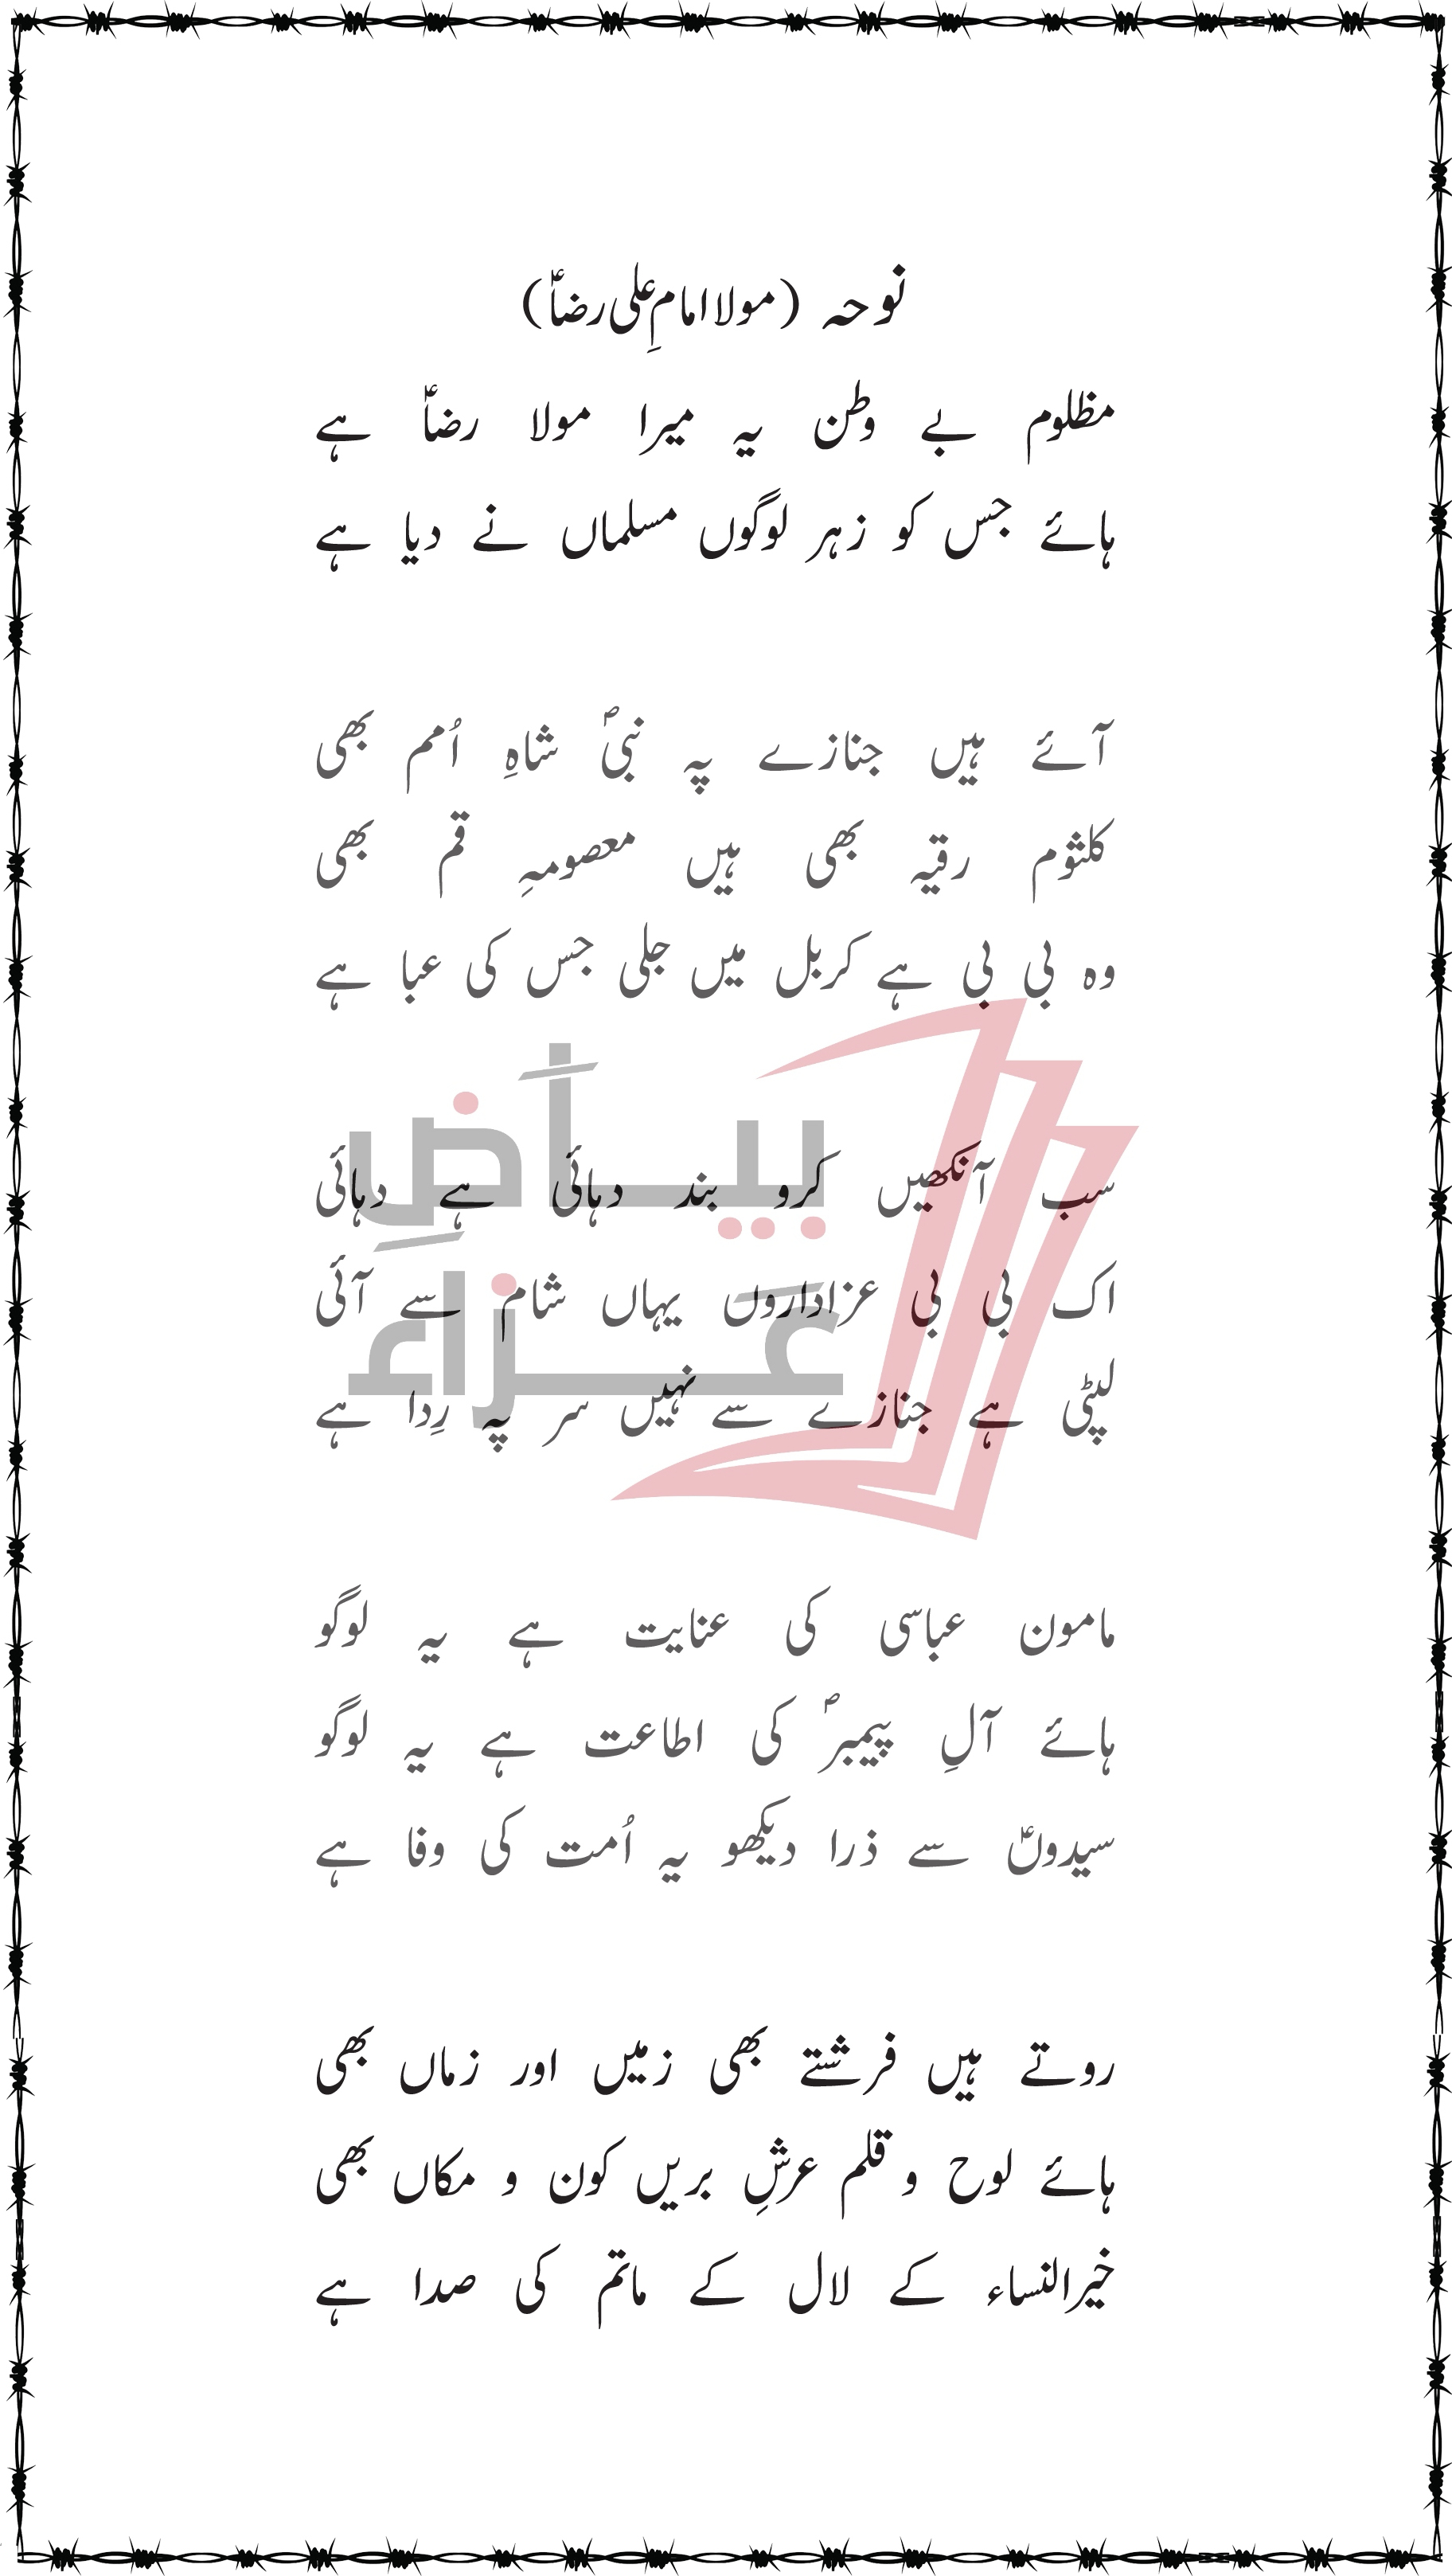 نوحہ (مولا امامِ علی رضاؑ)
مظلوم بے وطن یہ میرا مولا رضاؑ ہے
ہائے جس کو زہر لوگوں مسلماں نے دیا ہے
آئے ہیں جنازے پہ نبیؐ شاہِ اُمم بھی
کلثوم رقیہ بھی ہیں معصومہِ قم بھی
وہ بی بی ہے کربل میں جلی جس کی عبا ہے
بیاضِ
سب آنکھیں کرو بند دہائی ہے دہائی
اک بی بی عزاداروں یہاں شام سے آئی
عزاء
لپٹی ہے جنازے سے نہیں سر پہ رِدا ہے
مامون عباسی کی عنایت ہے یہ لوگو
ہائے آلِ پیمبرؐ کی اطاعت ہے یہ لوگو
سیدوںؑ سے ذرا دیکھو یہ اُمت کی وفا ہے
روتے ہیں فرشتے بھی زمیں اور زماں بھی
ہائے لوح و قلم عرشِ بریں کون و مکاں بھی
خیرالنساء کے لال کے ماتم کی صدا ہے